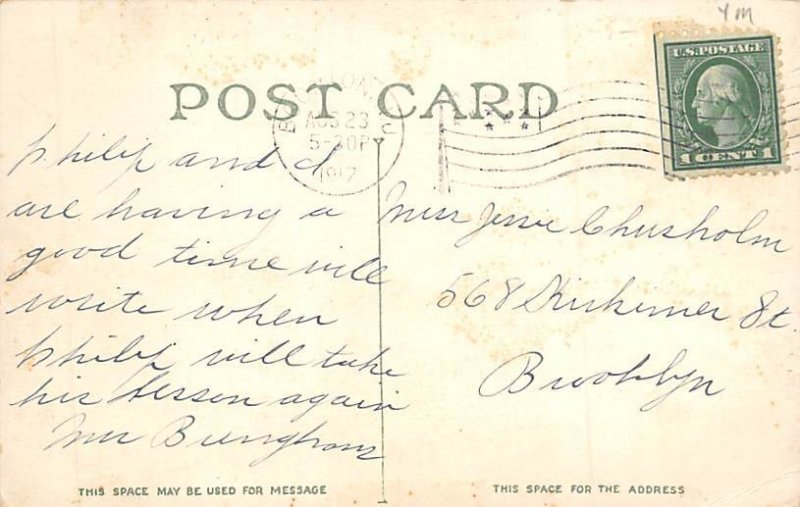 Y M
U.S. POSTAGE
1 CENT 1
POST CARD
AUG 23
5-30P
1917
Philip and I
are having a
good time will
write when
Philip will take
his lesson again
Mrs
Miss Jessie Chisholm
568 St.
Brooklyn
THIS SPACE MAY BE USED FOR MESSAGE
THIS SPACE FOR THE ADDRESS